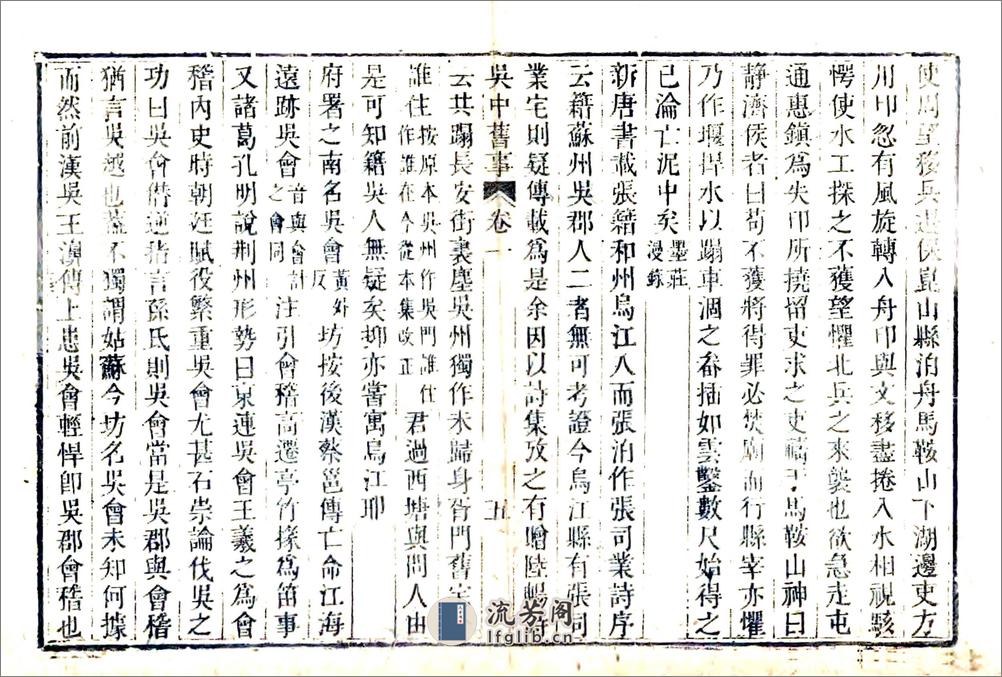 使周望移兵退保崑山縣泊舟馬鞍山下湖邊吏方
用印忽有風旋轉入舟印與文移盡捲入水相視駭
愕使水工探之不獲望懼北兵之來襲也欲急走屯
通惠鎮為失印所撓留吏求之吏禱于馬鞍山神曰
静濟侯者曰苟不獲將得罪必焚廟而行縣宰亦懼
乃作堰捍水以蹋車涸之畚插如雲鑿數尺始得之
已淪亡泥中矣墨莊漫錄
新唐書載張籍和州烏江人而張洎作張司業詩序
云籍蘇州吳郡人二者無可考證今烏江縣有張司
業宅則疑傳載為是余因以詩集攷之有贈陸暢詩
吳中舊事 卷一 五
云共蹋長安街裏塵吳州獨作未歸身胥門舊宅
誰住按原本吳州作吳門誰住作誰在今從本集改正君過西塘與問人由
是可知籍吳人無疑矣抑亦嘗寓烏江耶
府署之南名吳會黃外反坊按後漢蔡邕傳亡命江海
遠跡吳會音與會計之會同注引會稽高遷亭竹椽為笛事
又諸葛孔明說荆州形勢曰東連吳會王羲之為會
稽內史時朝廷賦役繁重吳會尤甚石崇論伐吳之
功曰吳會僣逆指言孫氏則吳會當是吳郡與會稽
猶言吳越也蓋不獨謂姑蘇今坊名吳會未知何據
而然前漢吳王濞傳上患吳會輕悍卽吳郡會稽也
流芳阁
lfglib.cn